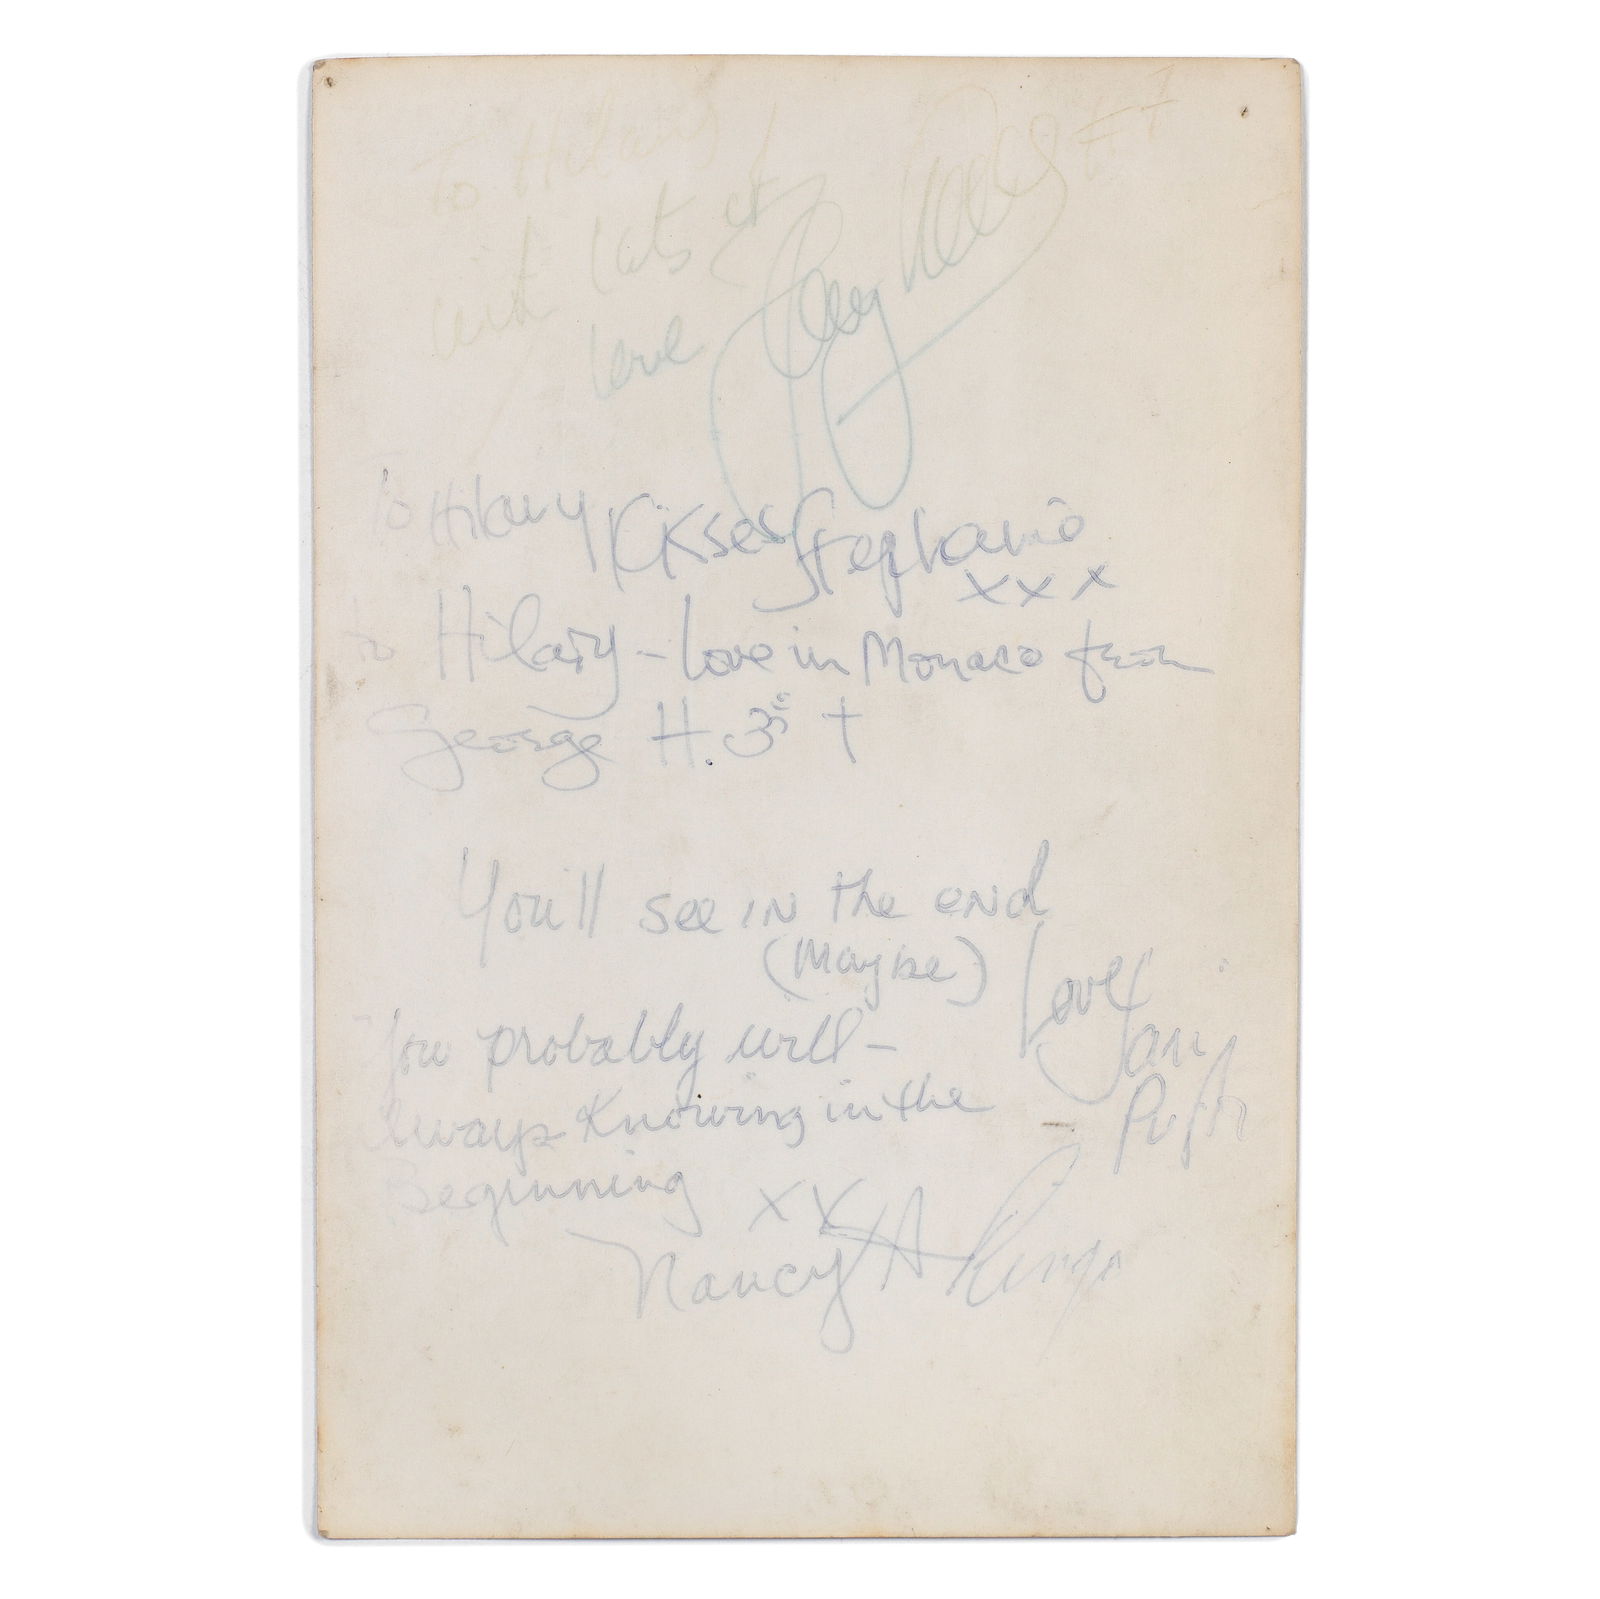 To Hilary
with lots of
love
To Hilary Kisses Stephanie
xxx
to Hilary - Love in Monaco from
George H. 3rd †
You'll see in the end
(Maybe)
Love
You probably will -
Always Knowing in the
Beginning xx
Nancy A
Ringo